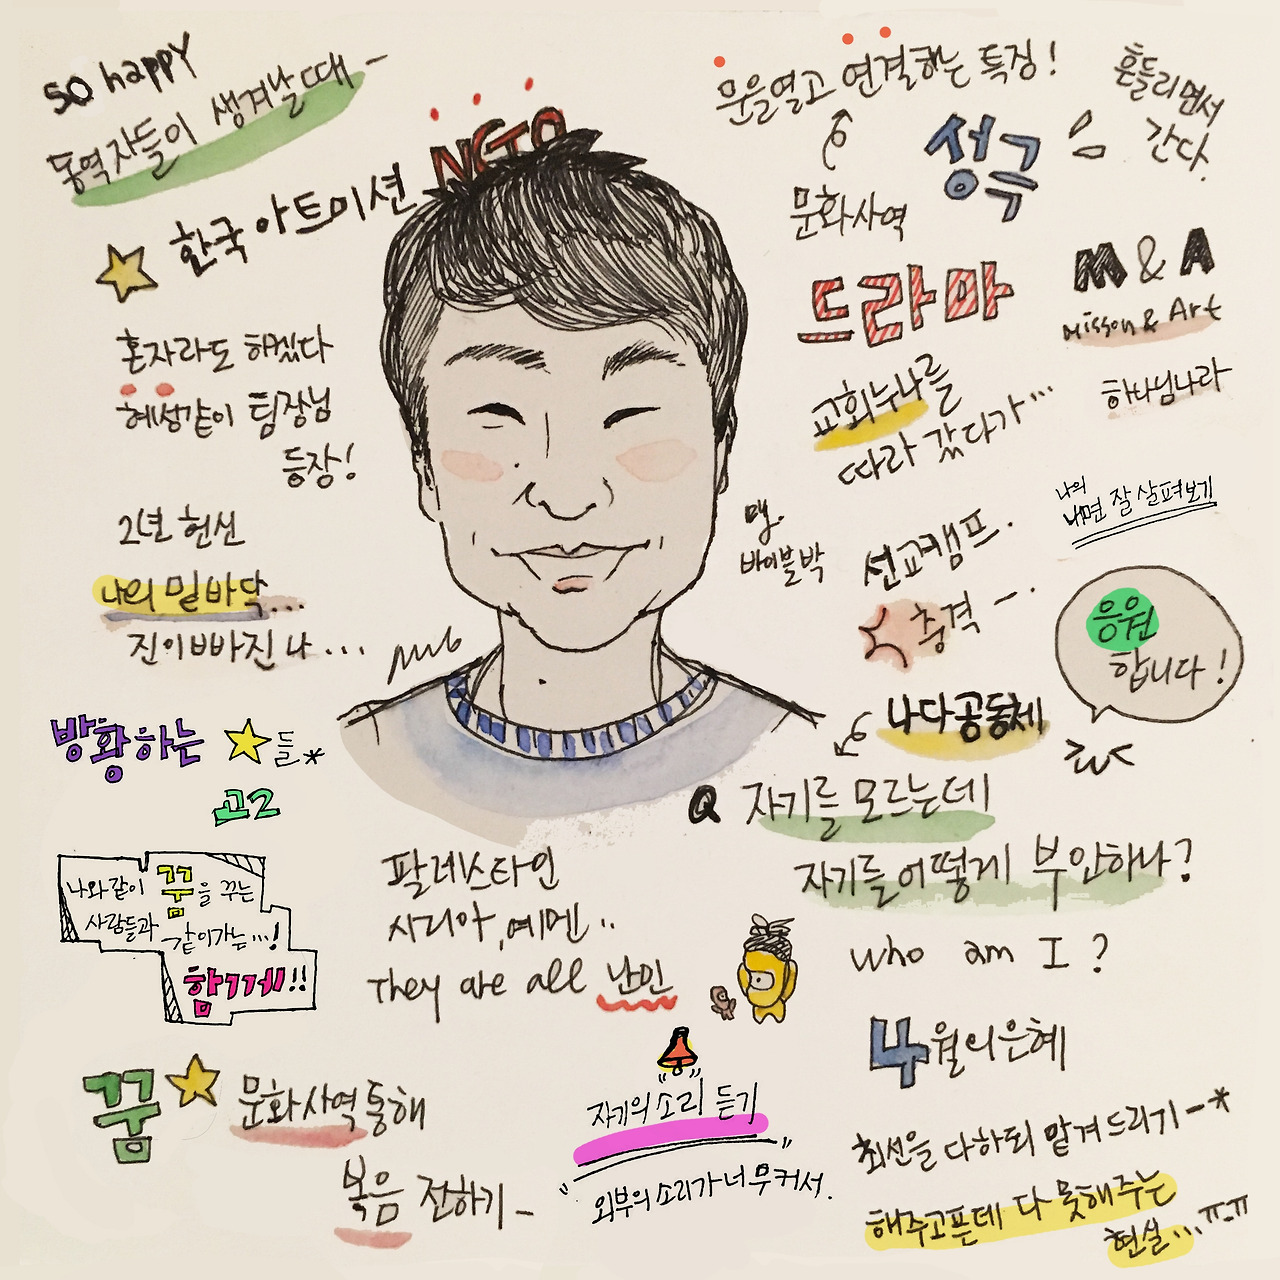 so happy
동역자들이 생겨날때-
NGTO
한국아트미션
혼자라도 하겠다
혜성같이 팀장님
등장!
2년 헌신
나의 밑바닥...
진이빠진 나...
방황하는 ★들*
고2
나와같이 꿈을 꾸는
사람들과 같이가는...!
함께!!
꿈 ★ 문화사역통해
복음 전하기-
팔레스타인
시리아, 예멘..
They are all 난민
자기의소리 듣기
"외부의소리가너무커서."
문을열고 연결하는 특징!
문화사역
성극
흔들리면서
간다.
드라마
M & A
Misson & Art
하나님나라
교회누나를
따라 갔다가...
나의
내면 잘살펴보기
바이블박
선교캠프.
충격-.
응원
합니다!
나다공동체
Q 자기를 모르는데
자기를어떻게 부인하나?
who am I?
4월의은혜
최선을 다하되 맡겨드리기-*
해주고픈데 다 못해주는
현실...ㅠ-ㅠ